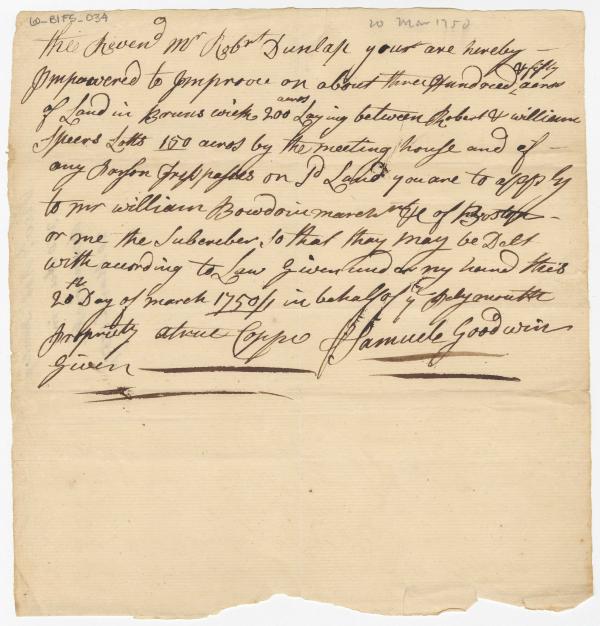 w_BIFS_034
20 Mar 1750
the Revend Mr Robrt Dunlap your are hereby
& fifty
Impowered to Improve on about three Hundred acros
acros
of Land in Brunswick 200 Laying between Robert & william
Speers Lotts 150 acros by the meeting house and if
any Parson Tresspasses on Sd Land you are to apply
to mr william Bowdoin march of Boston
or me the Subcriber So that thay may be Delt
with acording to Law Given under my hand this
20th Day of march 1750/1 in behalf of ye Plymouth
Propriety a true Coppe Samuele Goodwin
Given